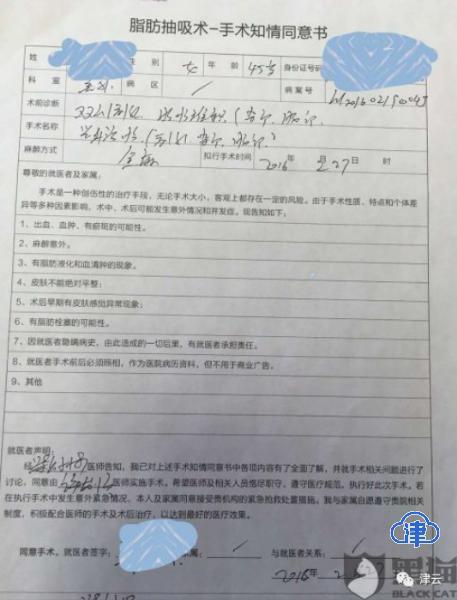 脂肪抽吸术-手术知情同意书
姓 性 别 女 年 龄 45岁 身份证号码
科 室 病 区 / 病案号
术前诊断
手术名称
麻醉方式 全麻 拟行手术时间 2016年 月27日 时
尊敬的就医者及家属:
手术是一种创伤性的治疗手段,无论手术大小,客观上都存在一定的风险。由于手术性质、特点和个体差
异等多种因素影响,术中、术后可能发生意外情况和并发症。现告知如下:
1、出血、血肿、有瘀斑的可能性。
2、麻醉意外。
3、有脂肪液化和血清肿的现象。
4、皮肤不能绝对平整;
5、术后早期有皮肤感觉异常现象;
6、有脂肪栓塞的可能性。
7、因就医者隐瞒病史,由此造成的一切后果,有就医者承担责任。
8、就医者手术前后必须照相,作为医院病历资料,但不用于商业广告。
9、其他
就医者声明:
经 医师告知,我已对上述手术知情同意书中各项内容有了全面了解,并就手术相关问题进行了
讨论,同意由 医师实施手术。希望医师及相关人员恪尽职守、遵守医疗规范、执行好此次手术。若
在执行手术中发生意外紧急情况,本人及家属同意接受贵机构的紧急抢救处置措施。我与家属自愿遵守贵院相
关制度,积极配合医师的手术及术后治疗,以达到最好的医疗效果。
同意手术。就医者签字: 属: / 与就医者关系: /
2016年
津
黑猫
BLACK CAT
津云